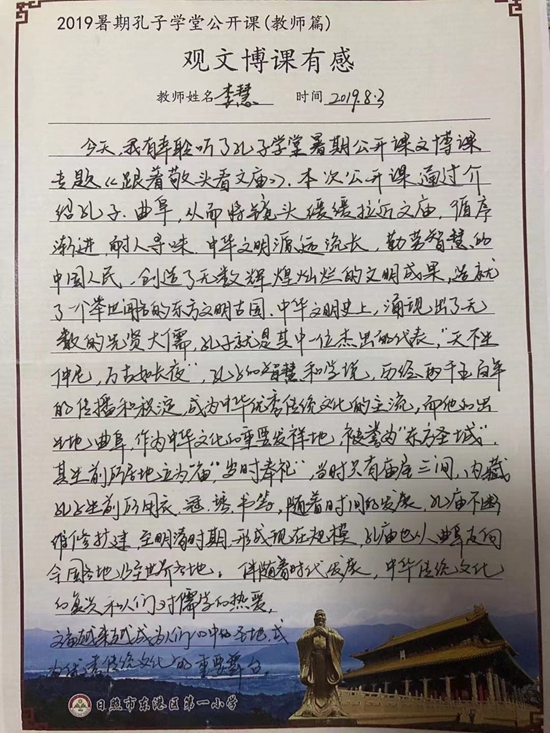 2019暑期孔子学堂公开课(教师篇)
观文博课有感
教师姓名 李慧 时间 2019.8.3
今天,我有幸聆听了孔子学堂暑期公开课文博课
专题《跟着散头看文庙》.本次公开课,通过介
绍孔子.曲阜,从而将镜头缓缓拉近文庙,循序
渐进,耐人寻味.中华文明源远流长,勤劳智慧的
中国人民,创造了无数辉煌灿烂的文明成果,造就
了一个举世闻名的东方文明古国.中华文明史上,涌现出了无
数的先贤大儒,孔子就是其中一位杰出的代表,"天不生
仲尼,万古如长夜",孔子的智慧和学说,历经两千五百年
的传播和积淀,成为中华优秀传统文化的主流,而他的出
生地曲阜,作为中华文化的重要发祥地,被誉为"东方圣城".
其生前所居地立为庙"岁时奉祀",当时只有庙屋三间,内藏
孔子生前所用衣、冠、琴、书等,随着时间的发展,孔庙不断
维修扩建,至明清时期,形成现在规模,孔庙也从曲阜走向
全国各地以至世界各地.伴随着时代发展,中华传统文化
的复兴和人们对儒学的热爱,
文庙越来越成为人们心中的圣地,成
为传统文化的重要舞台.
日照市东港区第一小学